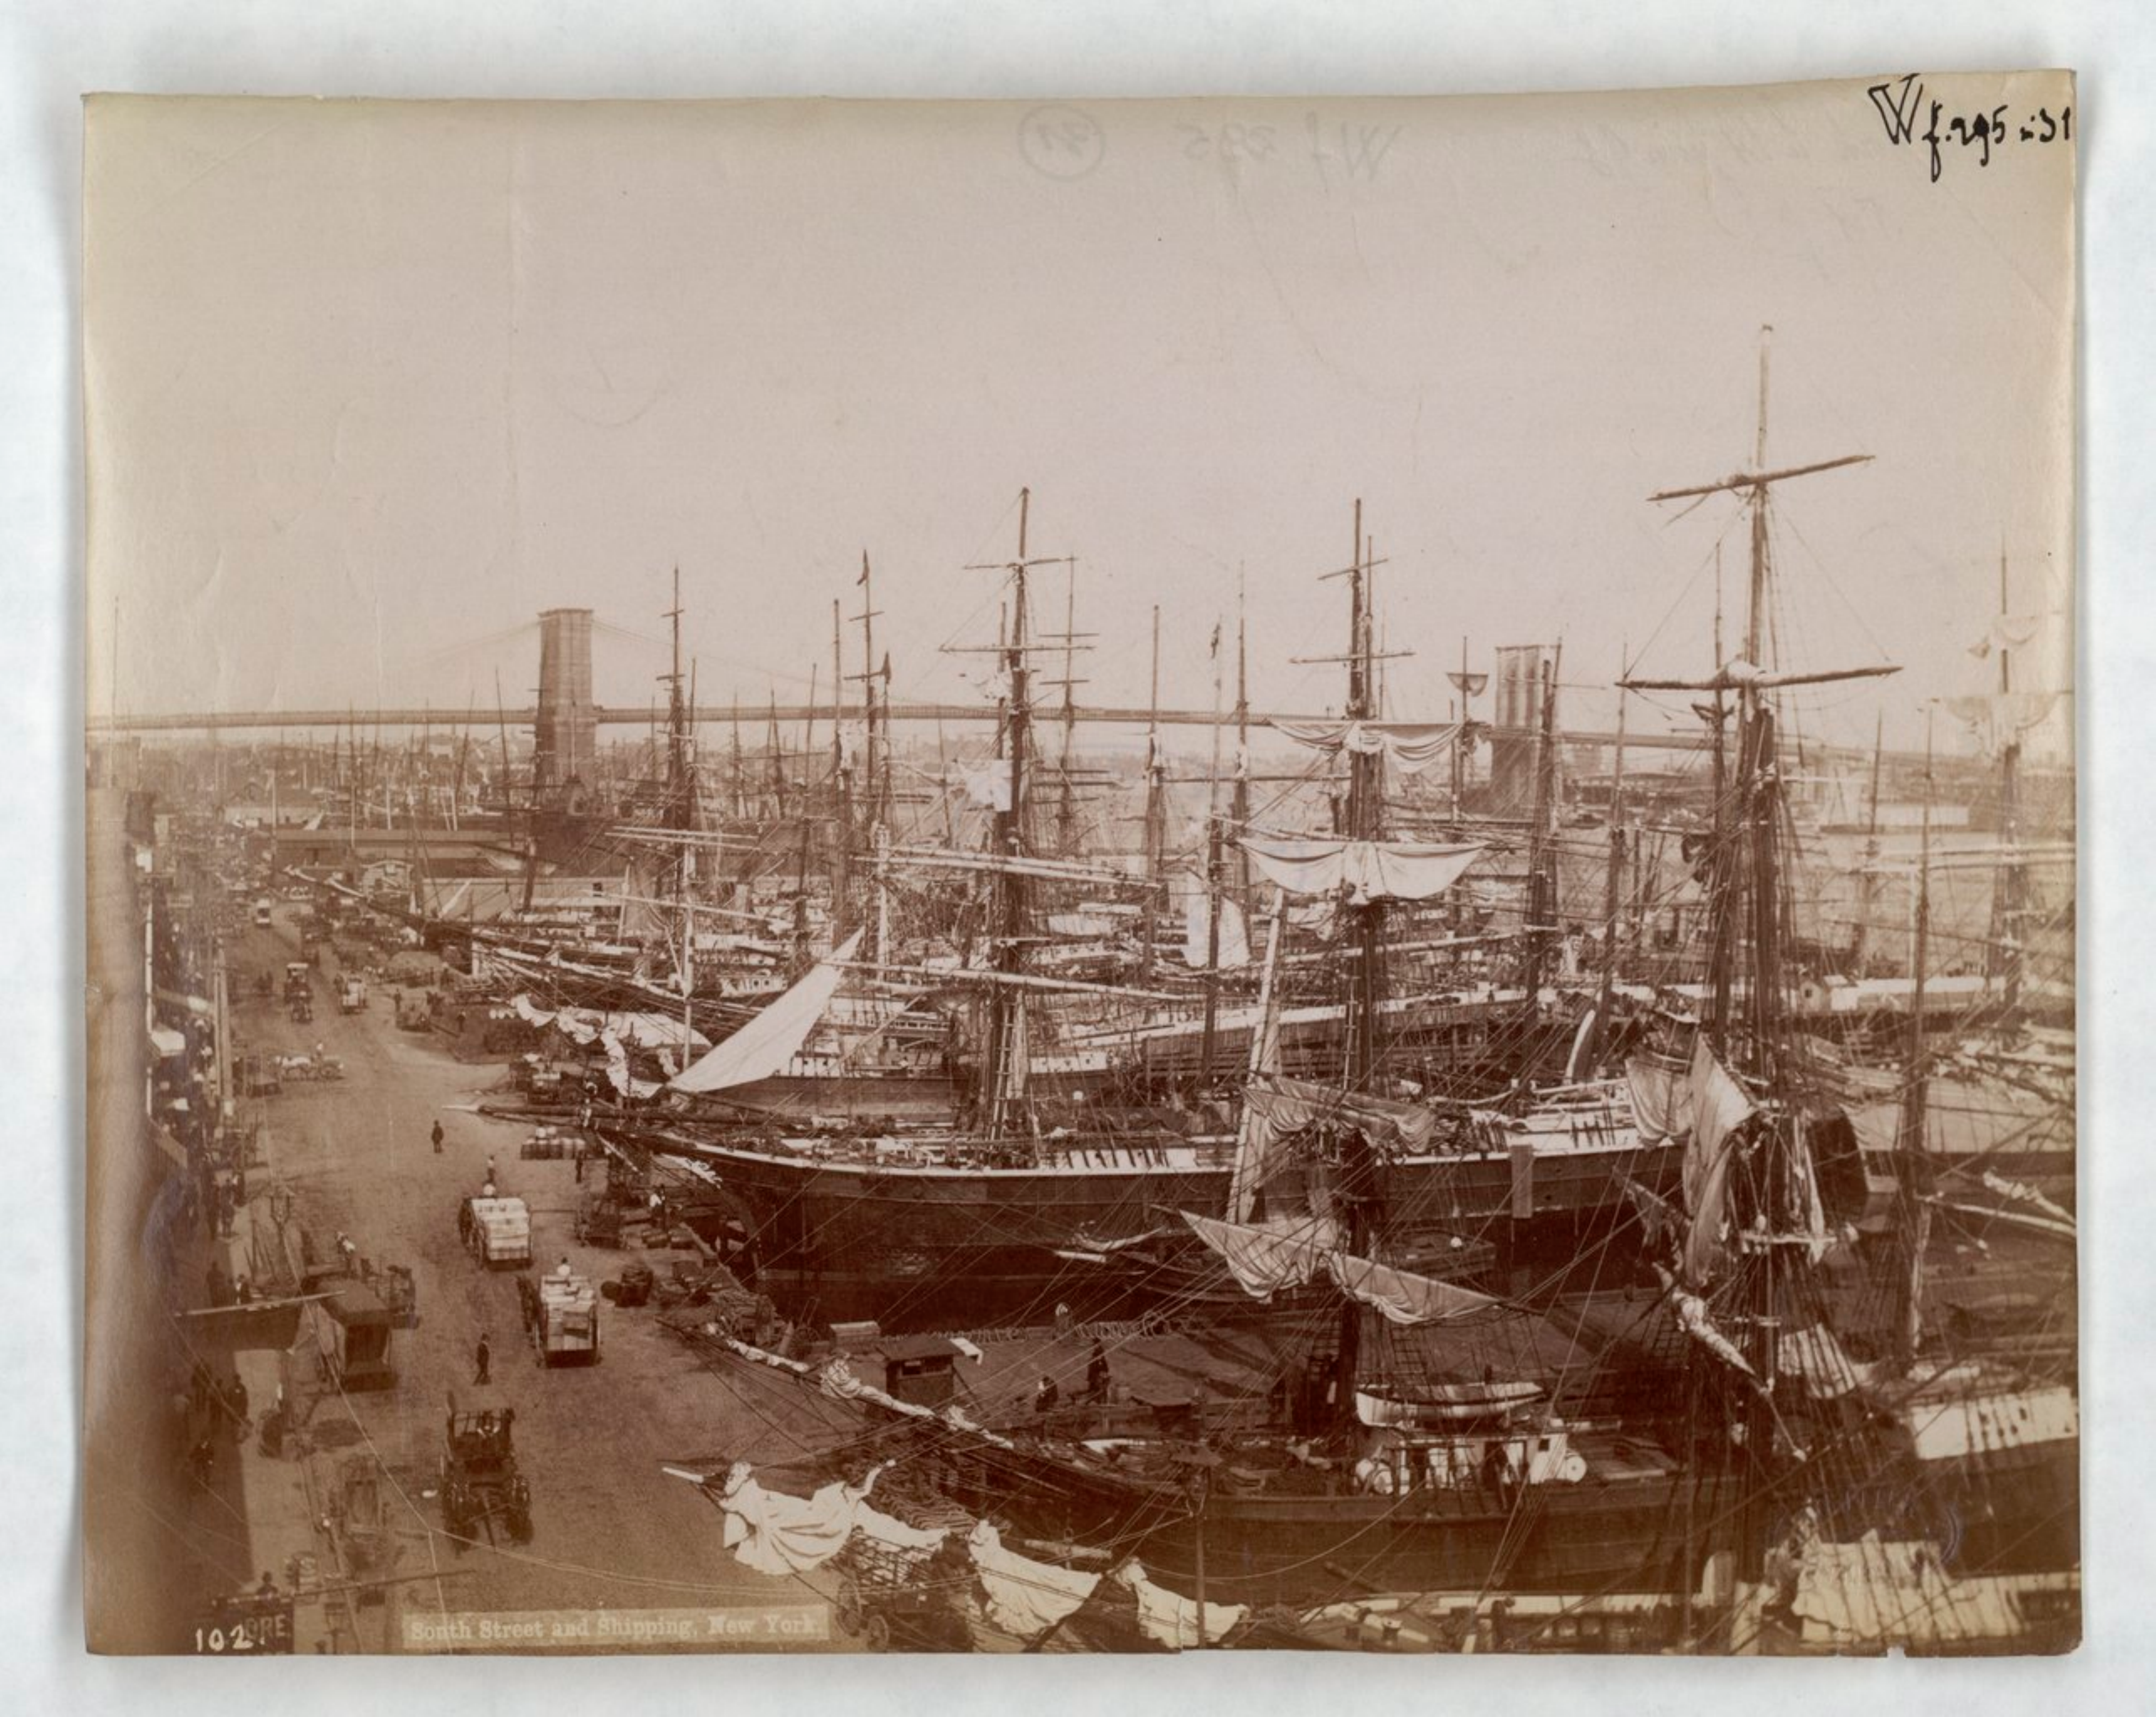 Wf. 295 - 31
Wf 295 31
102.
South Street and Shipping, New York.